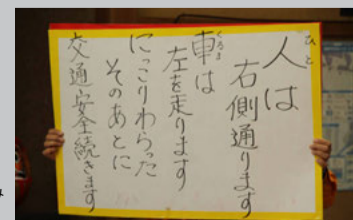 人は
右側通ります
車は
左を走ります
にっこりわらった
そのあとに
交通安全続きます
ひと
くるま